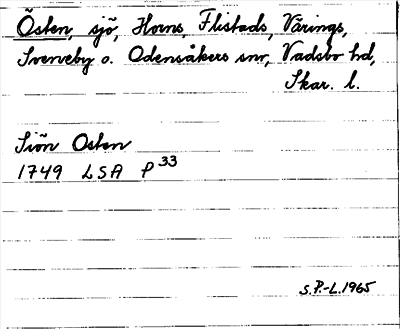 Östen, sjö, Horns, Flistads, Värings,
Sveneby o. Odensåkers snr, Vadsbo hd,
Skar. l.
Siön Osten
1749 LSA P33
S.P.-L. 1965